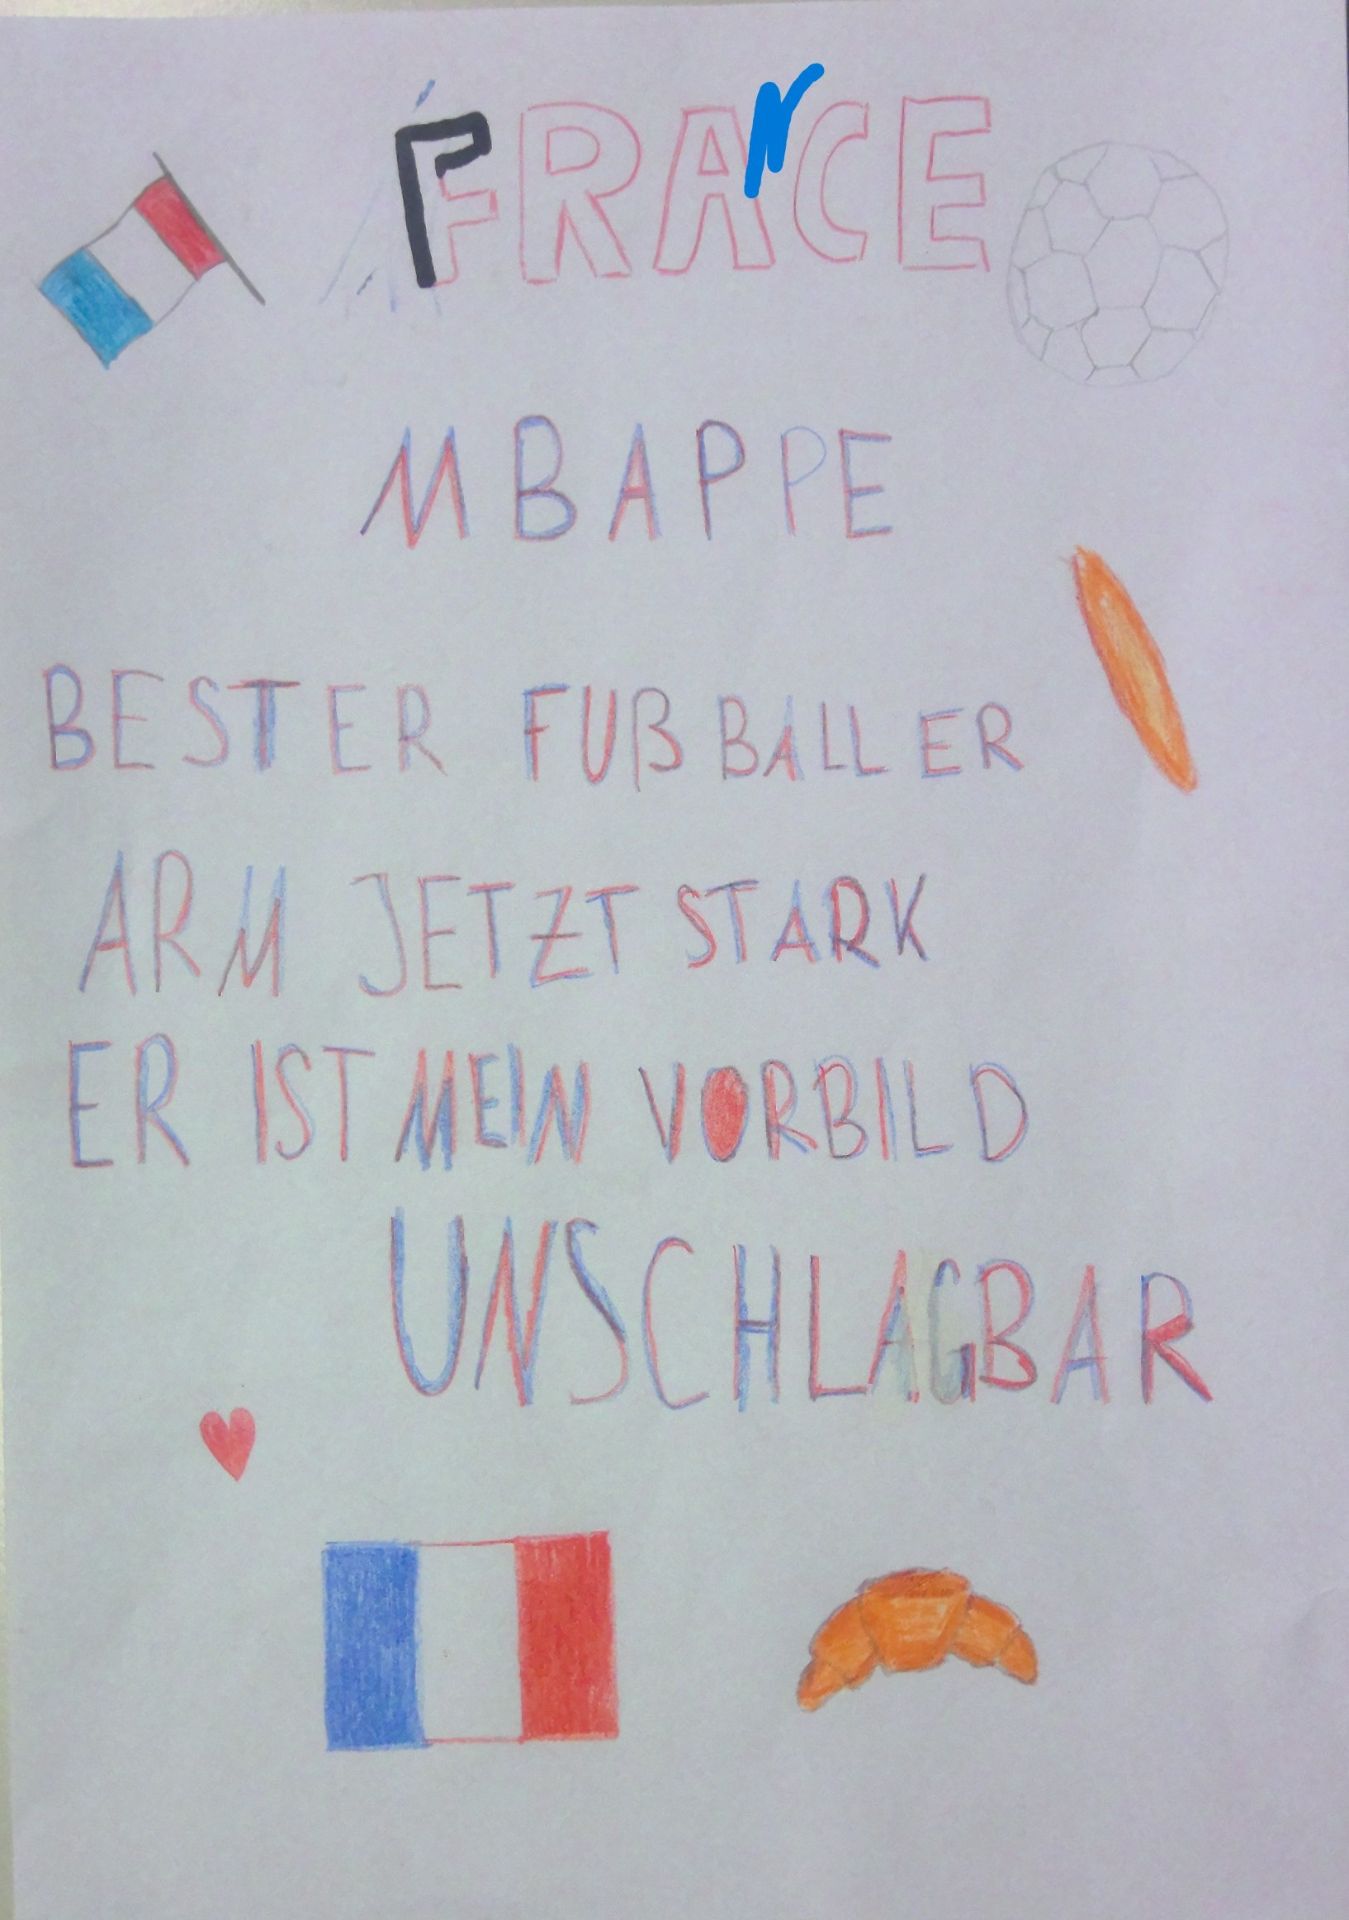 FRANCE
MBAPPE
BESTER FUßBALLER
ARM JETZT STARK
ER IST MEIN VORBILD
UNSCHLAGBAR